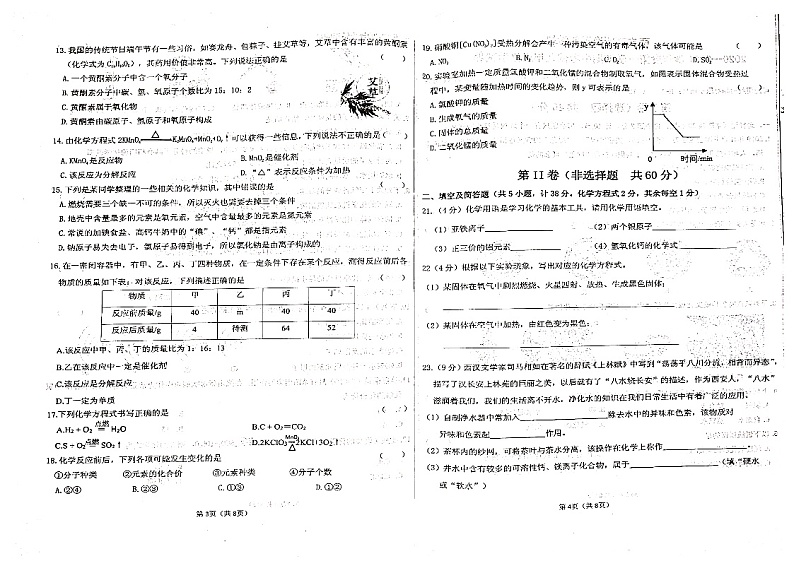 13.我国的传统节日端午节有一些习俗,如赛龙舟、包粽子、挂艾草等,艾草中含有丰富的黄酮素
(化学式为C₁₅H₁₀O₂),其药用价值非常高。下列说法正确的是( )
A.一个黄酮素分子中含一个氧分子
B.黄酮素分子中碳、氢、氧原子个数比为 15:10:2
C.黄酮素属于氧化物
D.黄酮素由碳原子、氢原子和氧原子构成
艾草
14.由化学方程式 2KMnO₄ △ K₂MnO₄+MnO₂+O₂↑可以获得一些信息,下列说法不正确的是( )
A.KMnO₄是反应物 B.MnO₂是催化剂
C.该反应为分解反应 D.“△”表示反应条件为加热
15.下列是某同学整理的一些相关的化学知识,其中错误的是( )
A.燃烧需要三个缺一不可的条件,所以灭火也需要去掉三个条件
B.地壳中含量最多的元素是氧元素,空气中含量最多的元素是氮元素
C.常说的加碘食盐、高钙牛奶中的“碘”、“钙”都是指元素
D.钠原子易失去电子,氯原子易得到电子,所以氯化钠是由离子构成的
16.在一密闭容器中,有甲、乙、丙、丁四种物质,在一定条件下存在某个反应,测得反应前后各
物质的质量如下表:对该反应,下列描述正确的是( )
物质 甲 乙 丙 丁
反应前质量/g 40 m 40 40
反应后质量/g 4 待测 64 52
A.该反应中甲、丙、丁的质量比为 1:16:13
B.乙在该反应中一定是催化剂
C.该反应是分解反应
D.丁一定为单质
17.下列化学方程式书写正确的是( )
A.H₂ + O₂ 点燃 H₂O B.C + O₂=CO₂
C.S + O₂ 点燃 SO₂↑ D.2KClO₃ MnO₂ 2KCl+3O₂↑
18.化学反应前后,下列各项可能发生变化的是( )
①分子种类 ②元素的化合价 ③元素种类 ④分子个数
A.②④ B.②③ C.①③ D.①②
第 3 页(共 8 页)
19.硝酸铜[Cu(NO₃)₂]受热分解会产生一种污染空气的有毒气体,该气体可能是( )
A.NO₂ D.SO₂
20.实验室加热一定质量氯酸钾和二氧化锰的混合物制取氧气,如图表示固体混合物受热过
程中,某变量随加热时间的变化趋势,则 y 可表示的是( )
A.氯酸钾的质量
B.生成氧气的质量
C.固体的总质量
D.二氧化锰的质量
y
0 时间/min
第 II 卷(非选择题 共 60 分)
二、填空及简答题(共 5 小题,计 38 分,化学方程式 2 分,其余每空 1 分)
21.(4 分)化学用语是学习化学的基本工具,请用化学用语填空。
(1)亚铁离子 (2)两个银原子
(3)正三价的铝元素 (4)氢氧化钙的化学式
22(4 分)根据以下实验现象,写出对应的化学方程式。
(1)某固体在氧气中剧烈燃烧、火星四射、放热、生成黑色固体:
(2)某固体在空气中加热,由红色变为黑色:
23.(9 分)西汉文学家司马相如在著名的辞赋《上林赋》中写到“荡荡乎八川分流,相背而异态”,
描写了汉长安上林苑的巨丽之美,以后就有了“八水绕长安”的描述,作为西安人,“八水”
滋润着我们,我们的生活离不开水,净化水的知识在我们日常生活中有着广泛的应用。
(1)自制净水器中常加入 除去水中的异味和色素,该物质对
异味和色素起 作用。
(2)茶杯内的纱网,可将茶叶与茶水分离,该操作在化学上称作
(3)井水中含有较多的可溶性钙、镁离子化合物,属于 (填“硬水
或“软水”)
第 4 页(共 8 页)